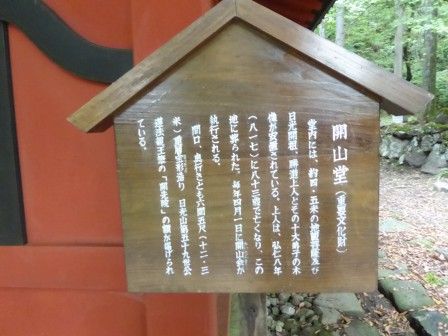 開山堂(重要文化財)
堂内には、約四・五米の地蔵菩薩及び
日光開祖、勝道上人とその十大弟子の木
像が安置されている。上人は、弘仁八年
(八一七)に八十三歳で亡くなり、この
地に葬られた。毎年四月一日に開山会が
執行される。
間口、奥行きとも六間五尺(十二・三
米)重層宝形造り 日光山第五十九世公
遵法親王筆の「開先院」の額が掲げられ
ている。